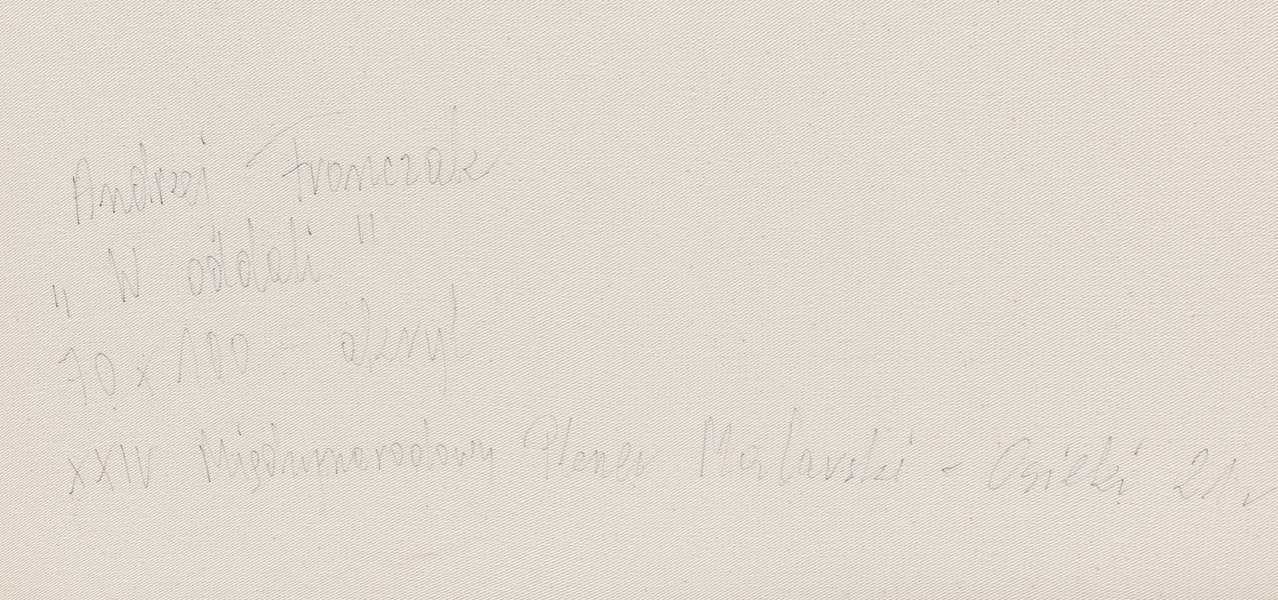 Andrzej Fronczak
„W oddali"
70 x 100 - akryl
XXIV Międzynarodowy Plener Malarski - Osieki 21r